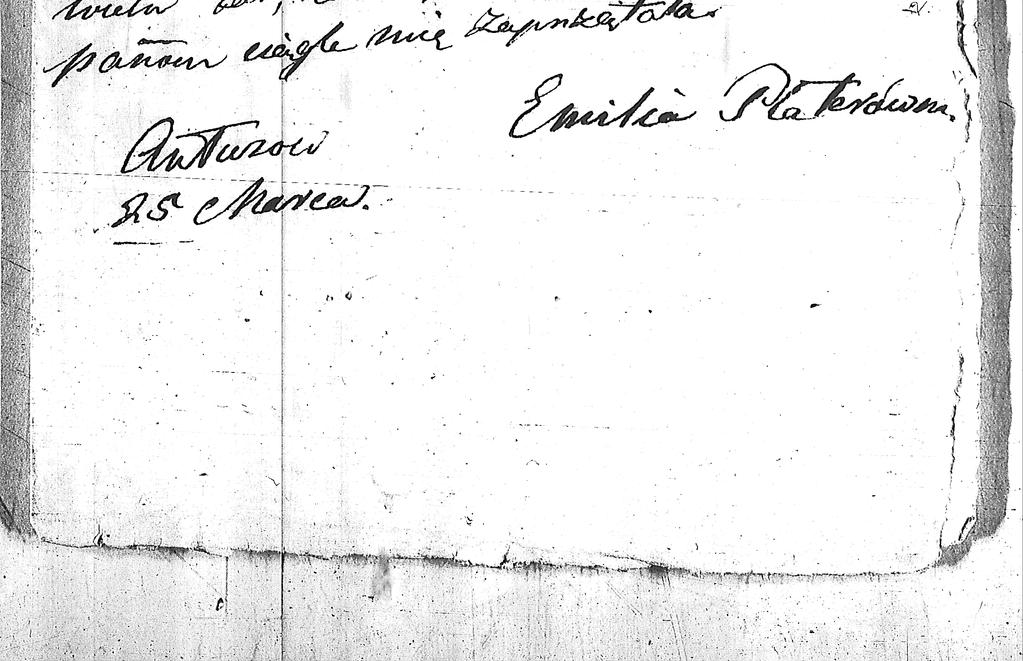 wielu
panom ciągle mię zaprzątała.
Emilia Platerówna.
Antuzow
25 Marca.